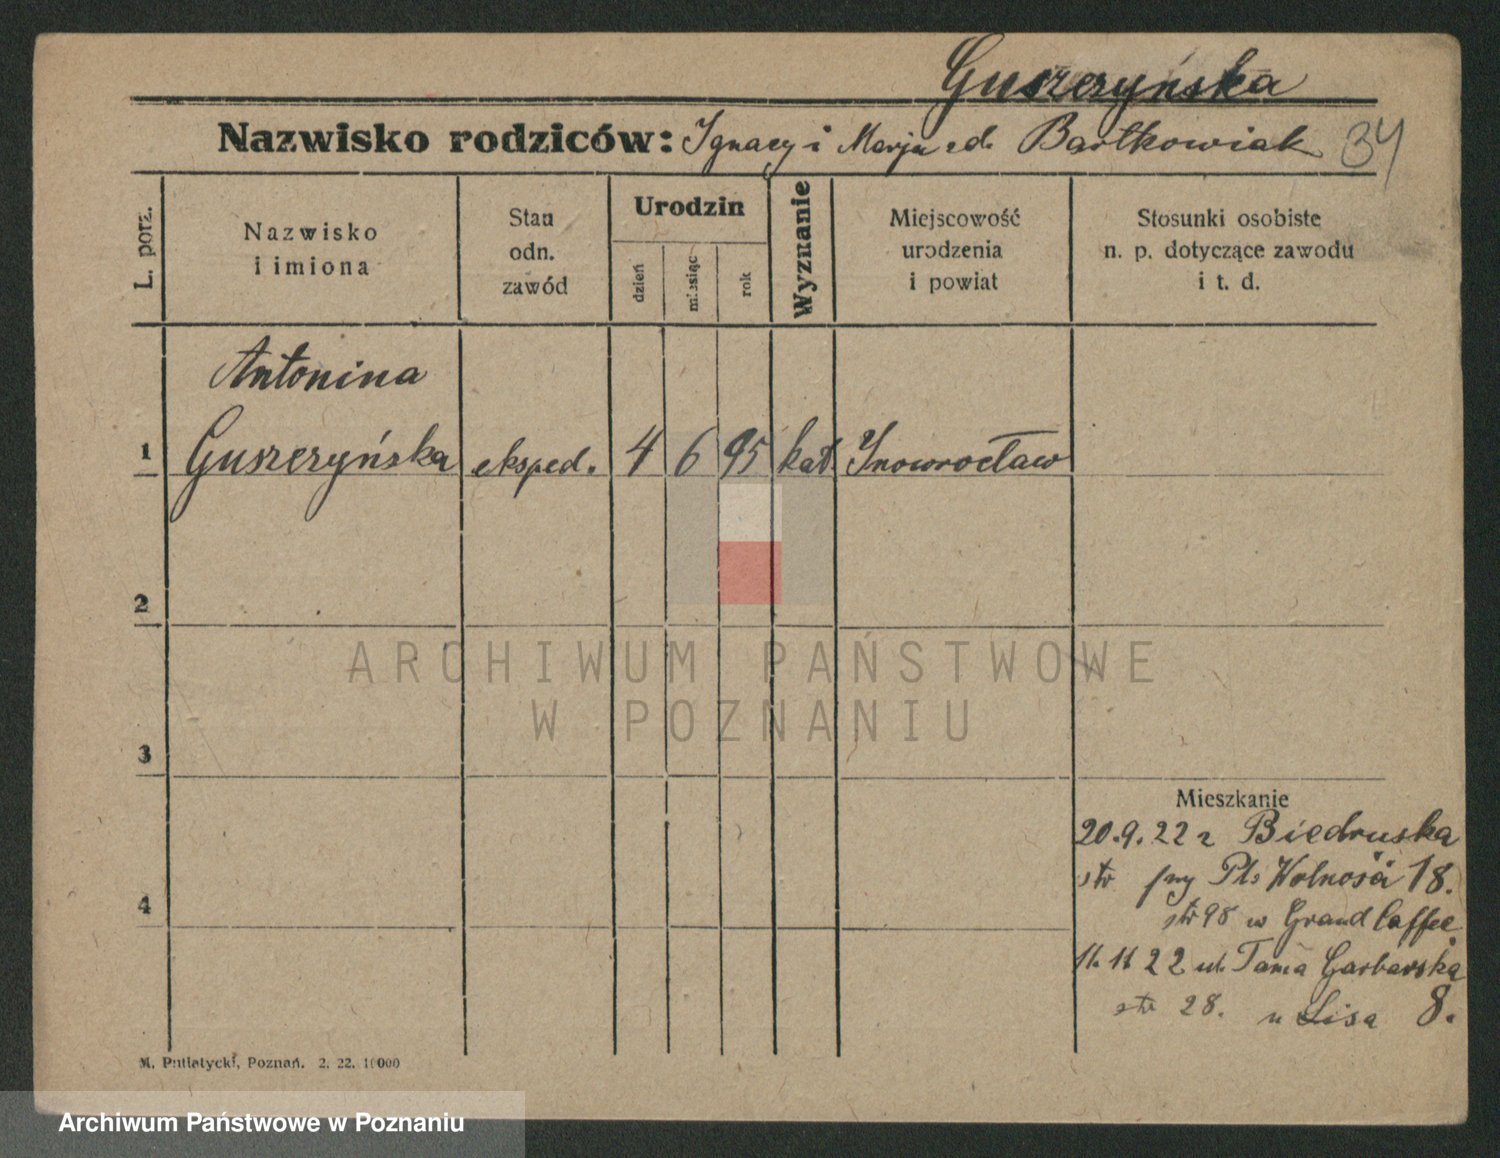 Guszczyńska
Nazwisko rodziców: Ignacy i Marja zd. Bartkowiak 34
L. porz.
Nazwisko
i imiona
Stan
odn.
zawód
Urodzin
dzień
miesiąc
rok
Wyznanie
Miejscowość
urodzenia
i powiat
Stosunki osobiste
n. p. dotyczące zawodu
i t. d.
Antonina
1 Guszczyńska eksped. 4 6 95 kat Inowrocław
2
ARCHIWUM PAŃSTWOWE
W POZNANIU
3
Mieszkanie
20.9.22 z Biedruska
str przy Pl. Wolności 18.
4
str 98 w Grand Caffee
11. 11 22 ul. Tama Garbarska
str 28. u Lisa 8.
M. Putiatycki, Poznań. 2. 22. 10000
Archiwum Państwowe w Poznaniu